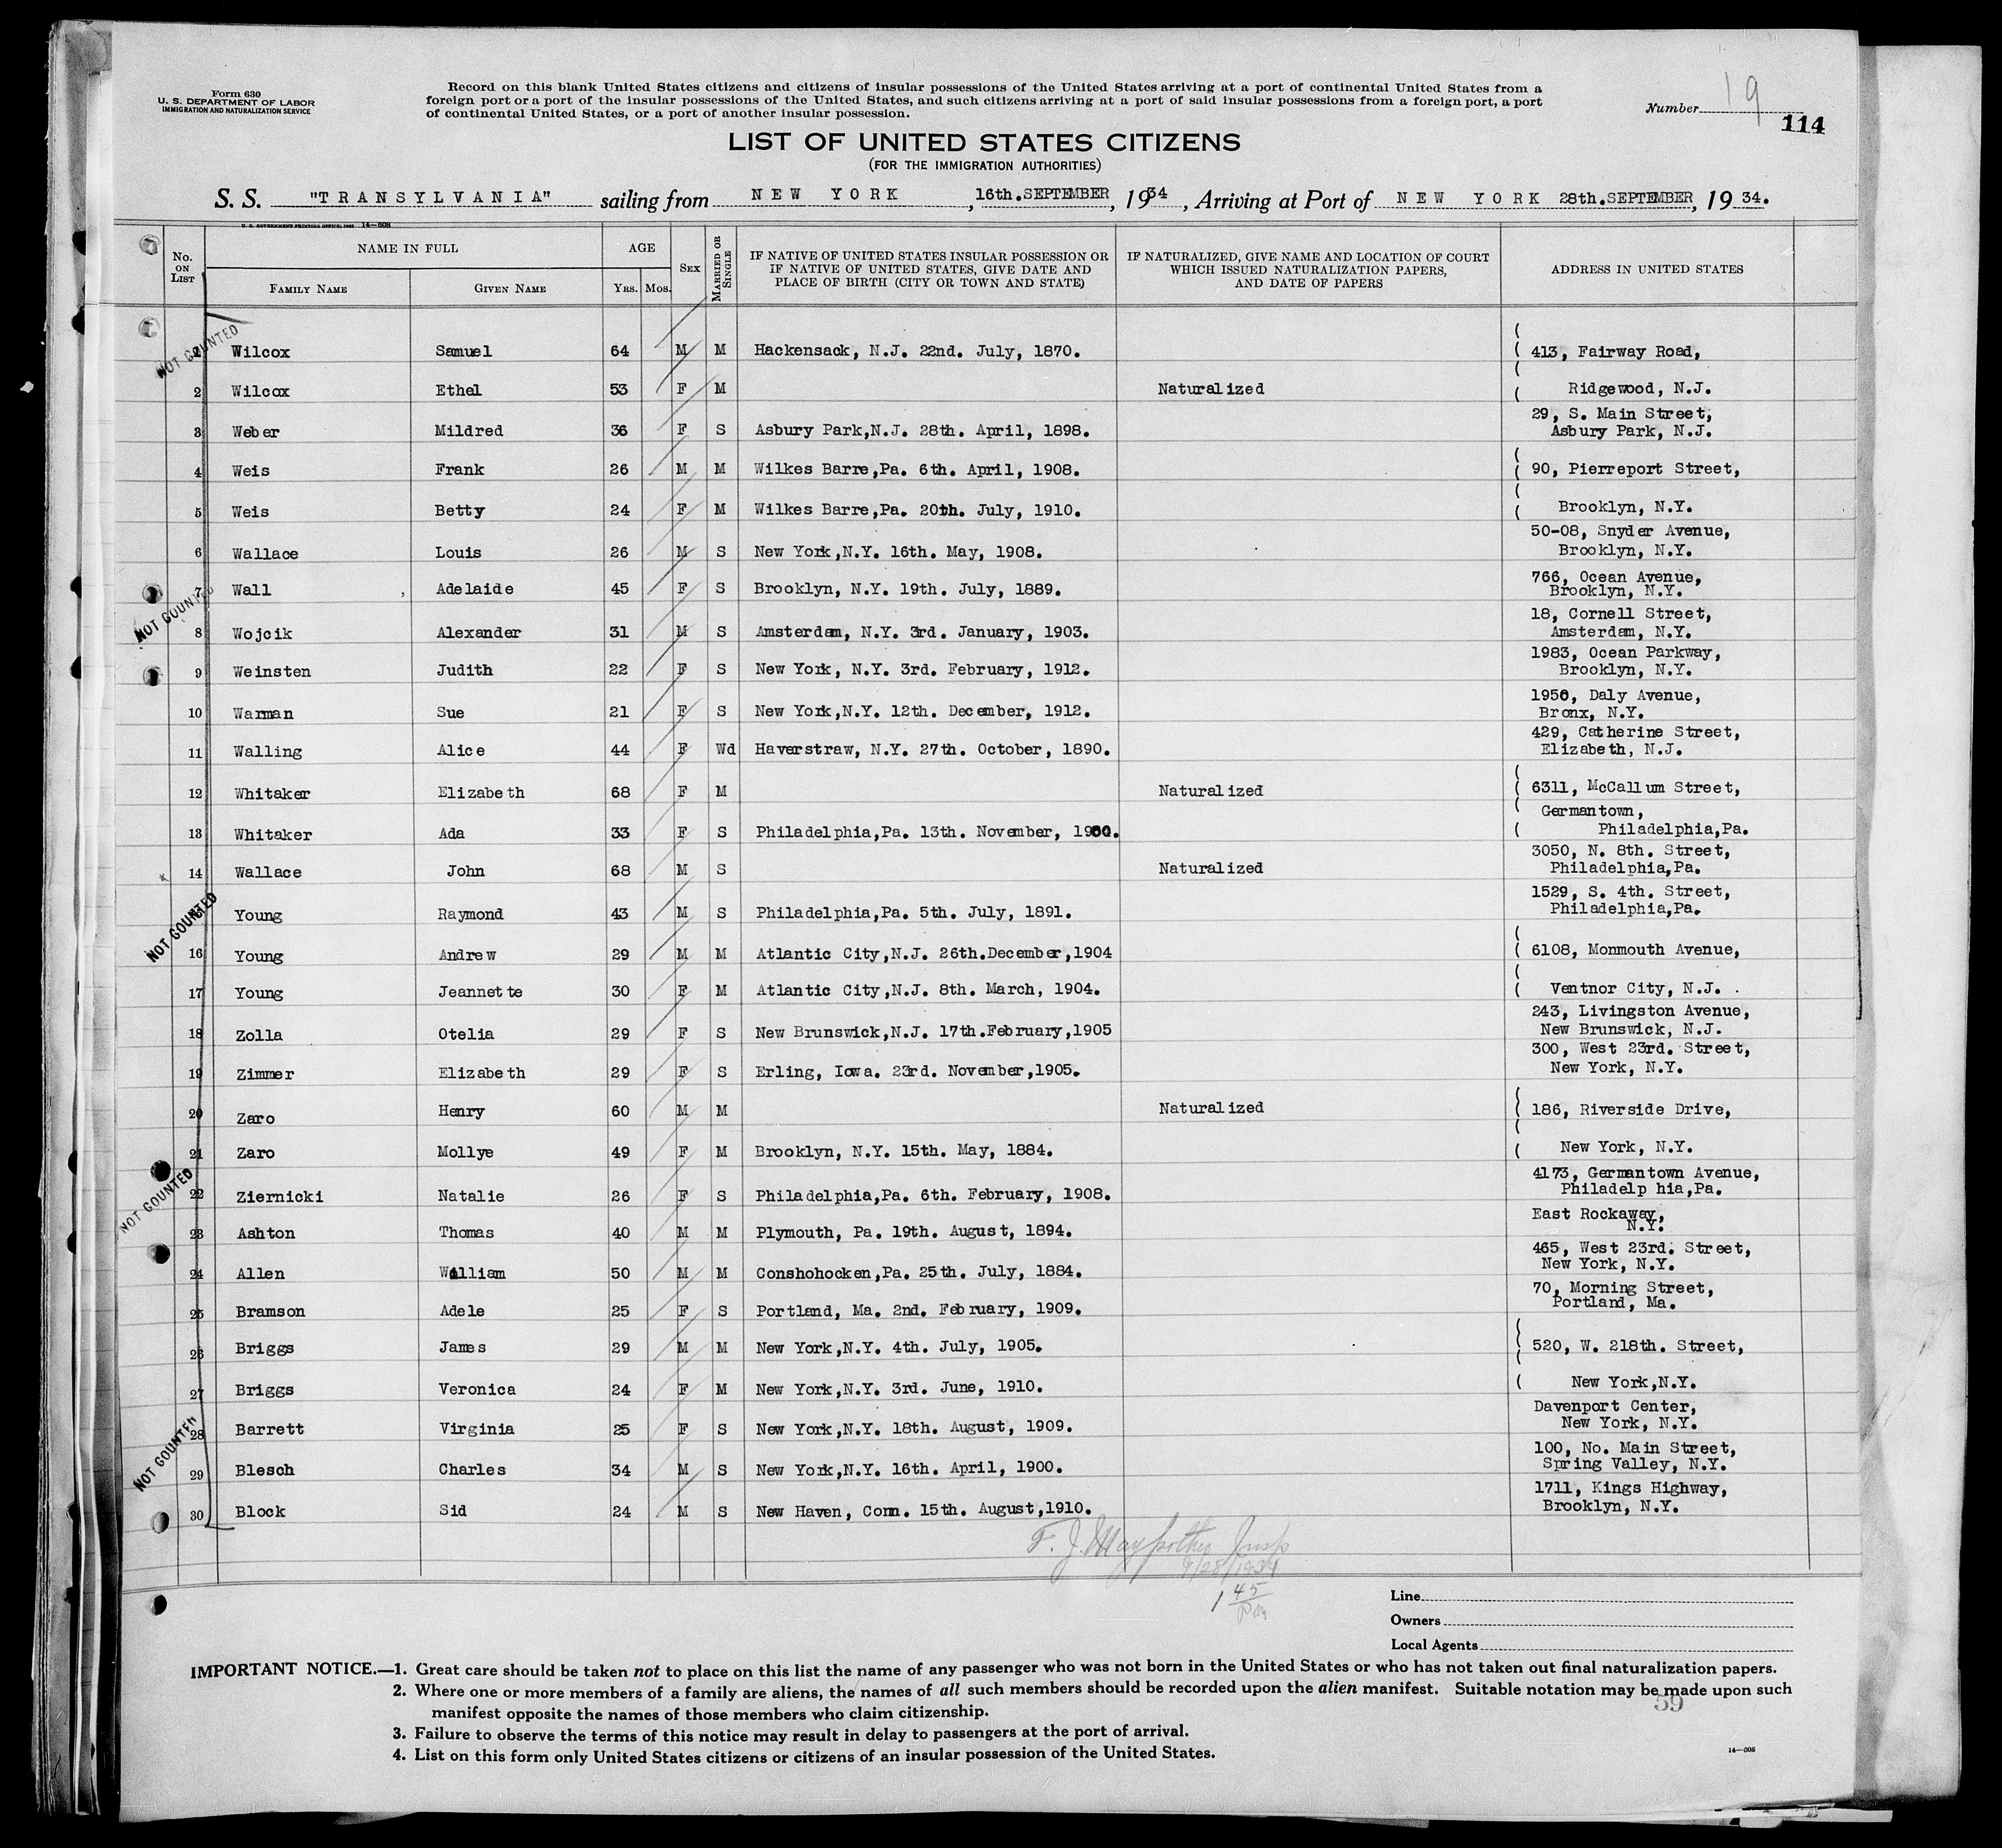 Form 630
U. S. DEPARTMENT OF LABOR
IMMIGRATION AND NATURALIZATION SERVICE
Record on this blank United States citizens and citizens of insular possessions of the United States arriving at a port of continental United States from a
foreign port or a port of the insular possessions of the United States, and such citizens arriving at a port of said insular possessions from a foreign port, a port
of continental United States, or a port of another insular possession.
Number 19
114
LIST OF UNITED STATES CITIZENS
(FOR THE IMMIGRATION AUTHORITIES)
S. S. "TRANSYLVANIA" sailing from NEW YORK, 16th. SEPTEMBER, 1934, Arriving at Port of NEW YORK 28th. SEPTEMBER, 1934.
U. S. GOVERNMENT PRINTING OFFICE: 14-608
No. ON LIST
NAME IN FULL
FAMILY NAME
GIVEN NAME
AGE
YRS.
MOS.
SEX
MARRIED OR SINGLE
IF NATIVE OF UNITED STATES INSULAR POSSESSION OR
IF NATIVE OF UNITED STATES, GIVE DATE AND
PLACE OF BIRTH (CITY OR TOWN AND STATE)
IF NATURALIZED, GIVE NAME AND LOCATION OF COURT
WHICH ISSUED NATURALIZATION PAPERS,
AND DATE OF PAPERS
ADDRESS IN UNITED STATES
NOT COUNTED
1 Wilcox Samuel 64 M M Hackensack, N.J. 22nd. July, 1870. ( 413, Fairway Road,
2 Wilcox Ethel 53 F M Naturalized ( Ridgewood, N.J.
3 Weber Mildred 36 F S Asbury Park,N.J. 28th. April, 1898. 29, S. Main Street,
Asbury Park, N.J.
4 Weis Frank 26 M M Wilkes Barre,Pa. 6th. April, 1908. ( 90, Pierreport Street,
5 Weis Betty 24 F M Wilkes Barre,Pa. 20th. July, 1910. ( Brooklyn, N.Y.
6 Wallace Louis 26 M S New York,N.Y. 16th. May, 1908. 50-08, Snyder Avenue,
Brooklyn, N.Y.
7 Wall Adelaide 45 F S Brooklyn, N.Y. 19th. July, 1889. 766, Ocean Avenue,
Brooklyn, N.Y.
NOT COUNTED
8 Wojcik Alexander 31 M S Amsterdam, N.Y. 3rd. January, 1903. 18, Cornell Street,
Amsterdam, N.Y.
9 Weinsten Judith 22 F S New York, N.Y. 3rd. February, 1912. 1983, Ocean Parkway,
Brooklyn, N.Y.
10 Warman Sue 21 F S New York,N.Y. 12th. December, 1912. 1950, Daly Avenue,
Bronx, N.Y.
11 Walling Alice 44 F Wd Haverstraw, N.Y. 27th. October, 1890. 429, Catherine Street,
Elizabeth, N.J.
12 Whitaker Elizabeth 68 F M Naturalized ( 6311, McCallum Street,
Germantown,
13 Whitaker Ada 33 F S Philadelphia,Pa. 13th. November, 1900. ( Philadelphia,Pa.
14 Wallace John 68 M S Naturalized 3050, N. 8th. Street,
Philadelphia,Pa.
NOT COUNTED
15 Young Raymond 43 M S Philadelphia,Pa. 5th. July, 1891. 1529, S. 4th. Street,
Philadelphia,Pa.
16 Young Andrew 29 M M Atlantic City,N.J. 26th.December,1904 ( 6108, Monmouth Avenue,
17 Young Jeannette 30 F M Atlantic City,N.J. 8th. March, 1904. ( Ventnor City, N.J.
18 Zolla Otelia 29 F S New Brunswick,N.J. 17th.February,1905 243, Livingston Avenue,
New Brunswick, N.J.
19 Zimmer Elizabeth 29 F S Erling, Iowa. 23rd. November,1905. 300, West 23rd. Street,
New York, N.Y.
20 Zaro Henry 60 M M Naturalized ( 186, Riverside Drive,
21 Zaro Mollye 49 F M Brooklyn, N.Y. 15th. May, 1884. ( New York, N.Y.
NOT COUNTED
22 Ziernicki Natalie 26 F S Philadelphia,Pa. 6th. February, 1908. 4173, Germantown Avenue,
Philadelp hia,Pa.
23 Ashton Thomas 40 M M Plymouth, Pa. 19th. August, 1894. East Rockaway,
N.Y.
24 Allen William 50 M M Conshohocken,Pa. 25th. July, 1884. 465, West 23rd. Street,
New York, N.Y.
25 Bramson Adele 25 F S Portland, Ma. 2nd. February, 1909. 70, Morning Street,
Portland, Ma.
26 Briggs James 29 M M New York,N.Y. 4th. July, 1905. ( 520, W. 218th. Street,
27 Briggs Veronica 24 F M New York,N.Y. 3rd. June, 1910. ( New York,N.Y.
28 Barrett Virginia 25 F S New York,N.Y. 18th. August, 1909. Davenport Center,
New York, N.Y.
NOT COUNTED
29 Blesch Charles 34 M S New York,N.Y. 16th. April, 1900. 100, No. Main Street,
Spring Valley, N.Y.
30 Block Sid 24 M S New Haven, Conn. 15th. August,1910. 1711, Kings Highway,
Brooklyn, N.Y.
F. J. Insp
9/28/1934
1 45 Pm
Line
Owners
Local Agents
IMPORTANT NOTICE.—1. Great care should be taken not to place on this list the name of any passenger who was not born in the United States or who has not taken out final naturalization papers.
2. Where one or more members of a family are aliens, the names of all such members should be recorded upon the alien manifest. Suitable notation may be made upon such
manifest opposite the names of those members who claim citizenship.
59
3. Failure to observe the terms of this notice may result in delay to passengers at the port of arrival.
4. List on this form only United States citizens or citizens of an insular possession of the United States.
14—608